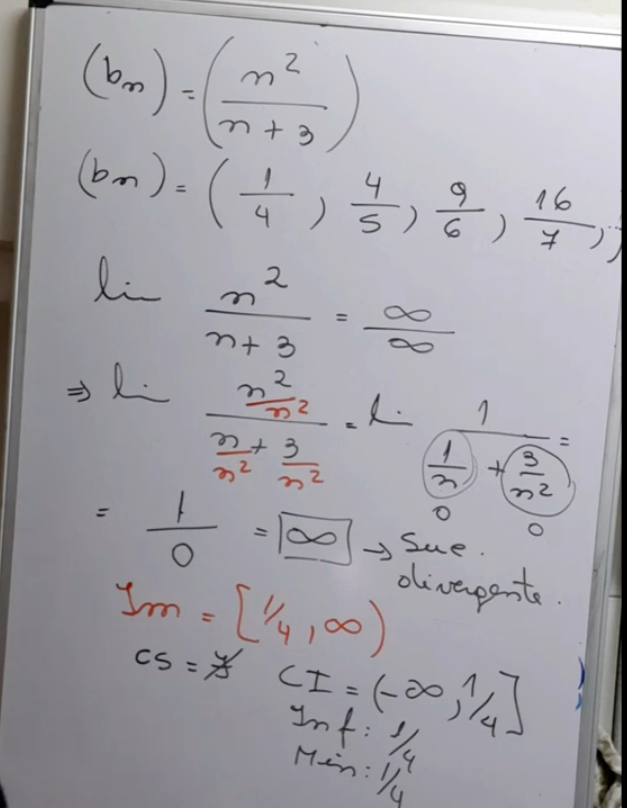 (bn) = (n²/(n + 3))
(bn) = (1/4, 4/5, 9/6, 16/7,
lim n²/(n + 3) = ∞/∞
⇒ lim (n²/n²)/(n/n² + 3/n²) = lim 1/(1/n + 3/n²) =
0 0
= 1/0 = ∞ → Suc.
divergente.
Im = [1/4, ∞)
CS = ∄ CI = (-∞, 1/4]
Inf: 1/4
Min: 1/4